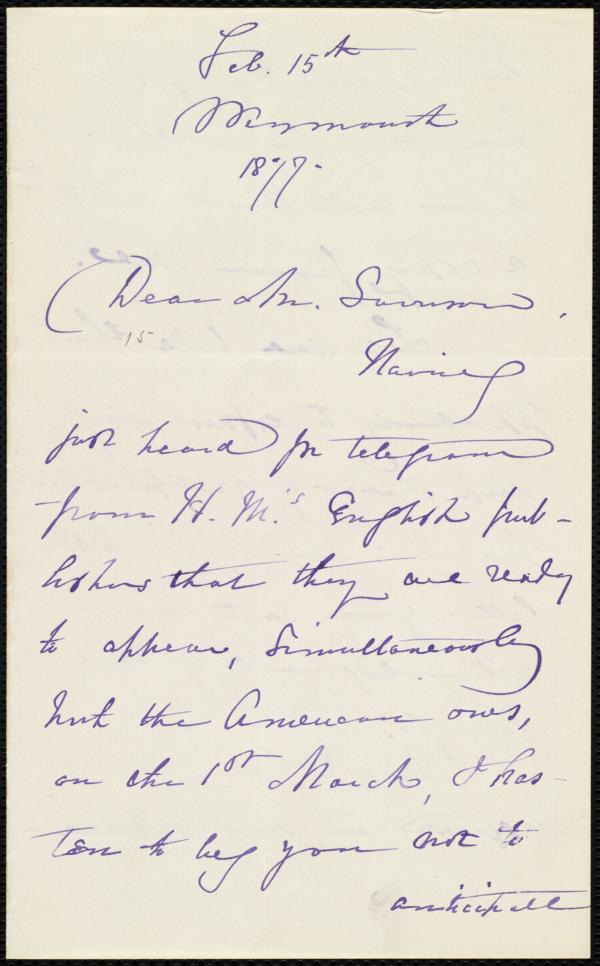 Feb. 15th
Weymouth
1877.
Dear Mr. Garrison,
15
Having
just heard per telegram
from H. M.'s English pub-
lishers that they are ready
to appear, simultaneously
with the American ones,
on the 1st March, I has-
ten to beg you not to
anticipate